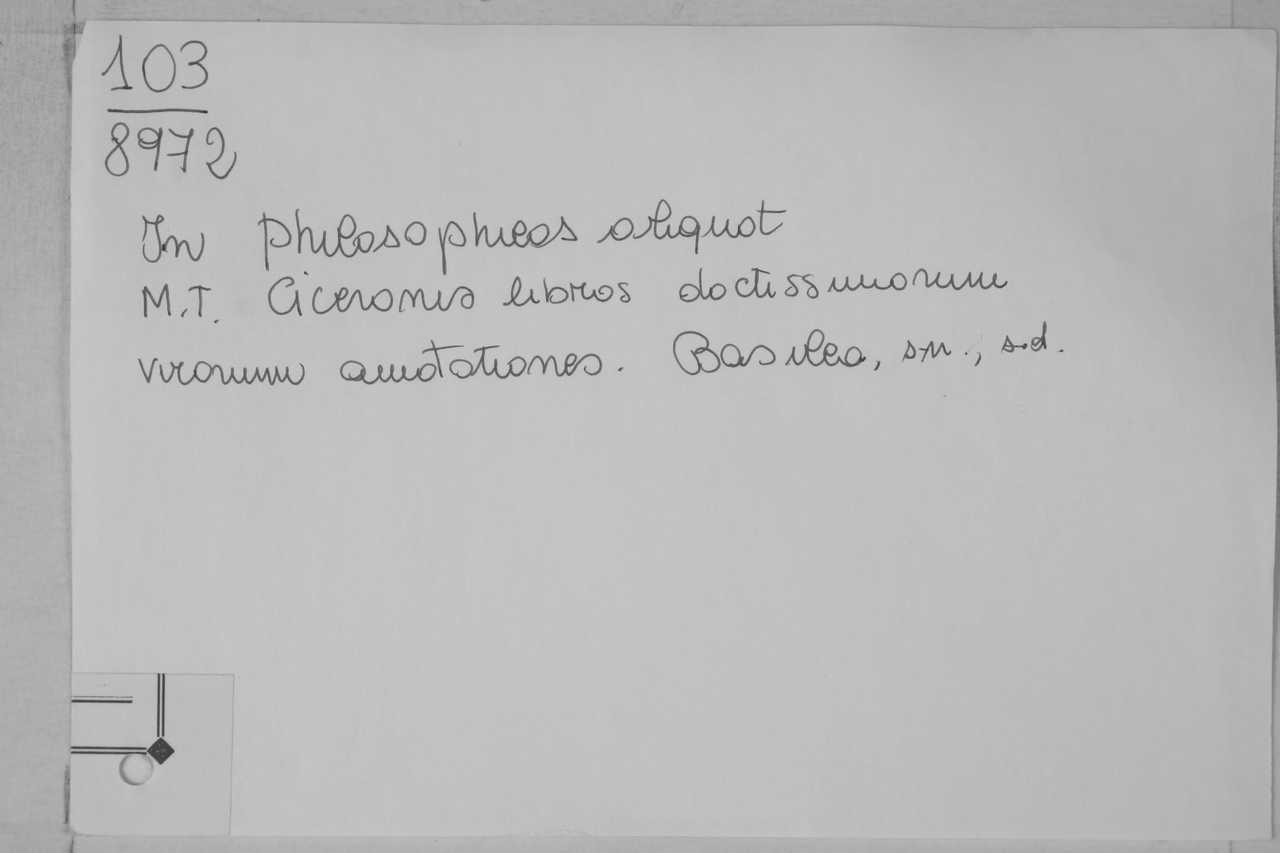 103
8972
In philosophicos aliquot
M.T. Ciceronis libros doctissimorum
virorum annotationes. Basilea, s.n., s.d.